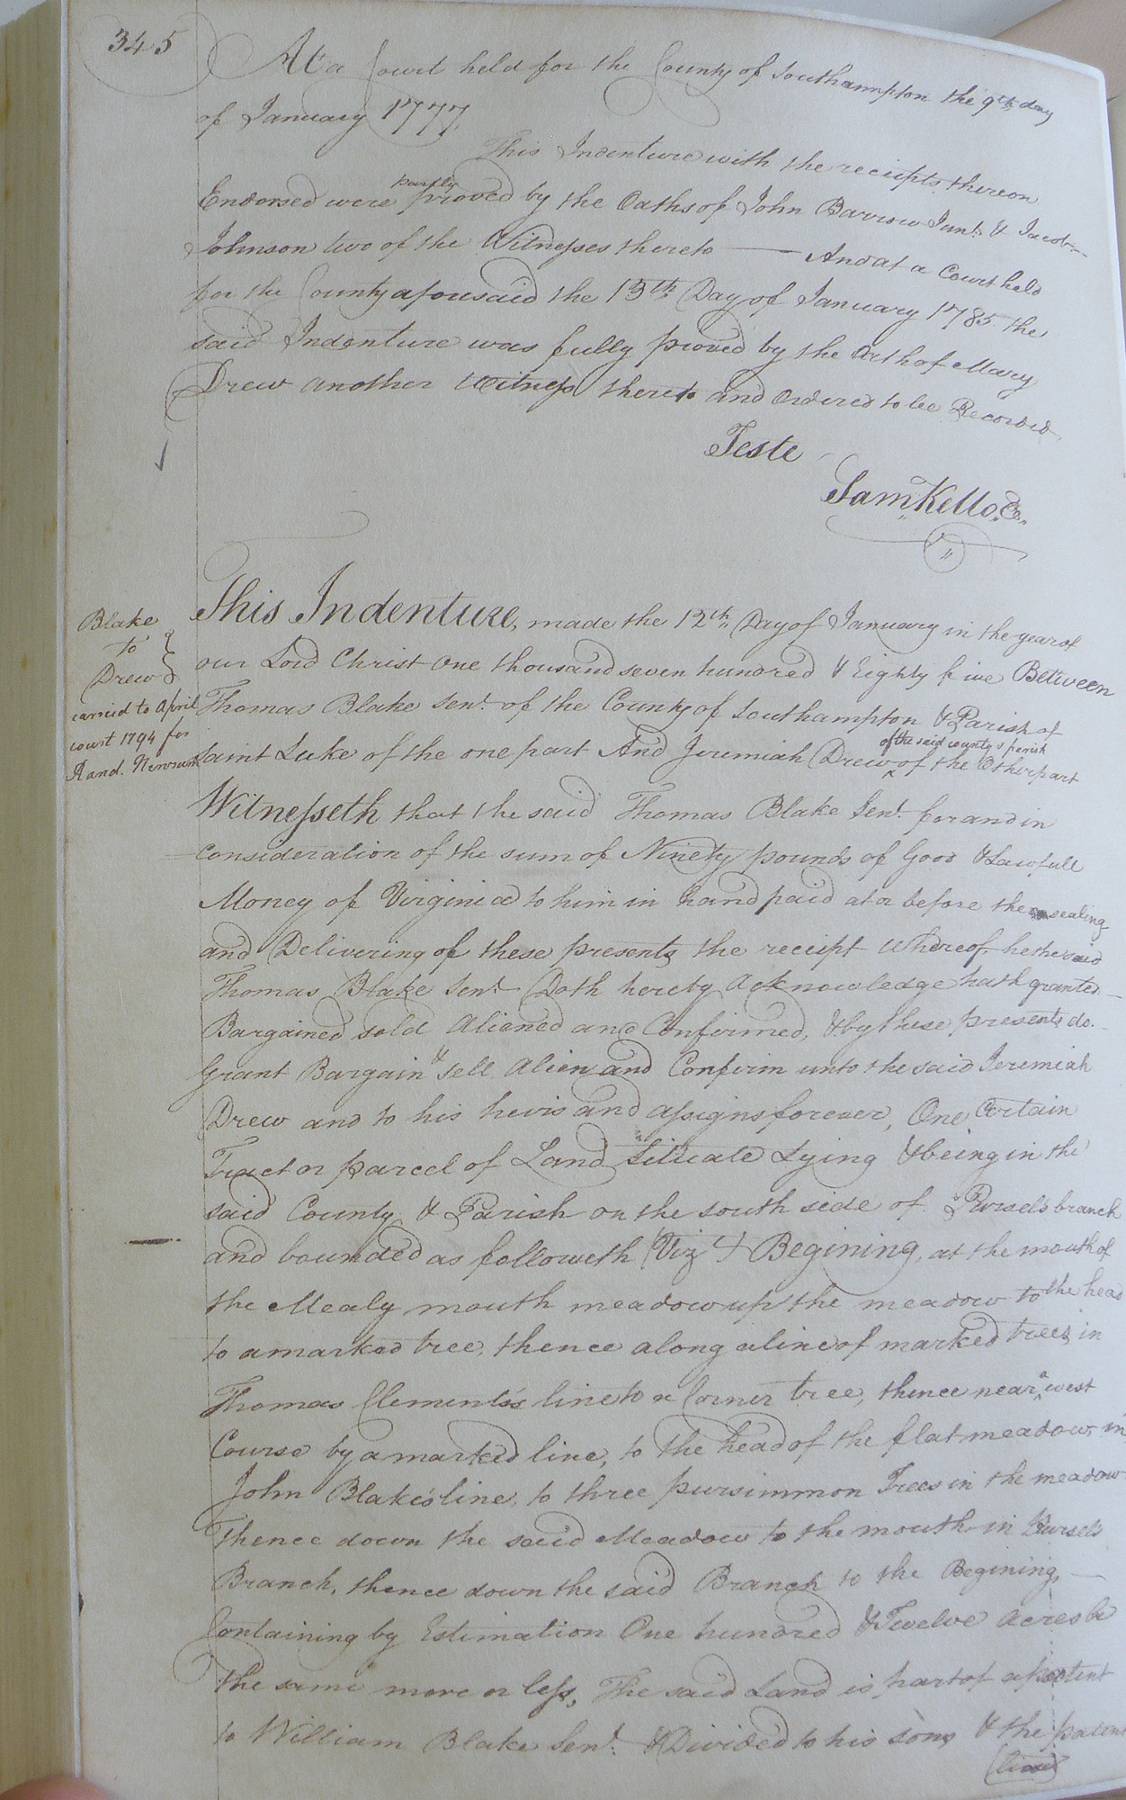 345
At a Court held for the County of Southampton the 9th day
of January 1777
This Indenture with the receipts thereon
Endorsed were partly proved by the Oaths of John Barrow Junr. & Jacob
Johnson two of the Witnesses thereto — And at a Court held
for the County aforesaid the 13th Day of January 1785 the
said Indenture was fully proved by the Oath of Mary
Drew another Witness thereto and Ordered to be Recorded
Teste
Saml. Kello, C.
Blake
to
Drew
carried to April
court 1794 for
This Indenture, made the 12th Day of January in the year of
our Lord Christ One thousand seven hundred & Eighty five Between
Thomas Blake Senr. of the County of Southampton & Parish of
Saint Luke of the one part And Jeremiah Drew of the said county & parish of the Other part
Witnesseth that the said Thomas Blake Senr. for and in
consideration of the sum of Ninety pounds of Good & Lawfull
Money of Virginia to him in hand paid at or before the sealing
and Delivering of these presents the receipt Whereof he the said
Thomas Blake Senr. Doth hereby Acknowledge hath granted
Bargained sold Aliened and Confirmed, & by these presents do
Grant Bargain & Sell Alien and Confirm unto the said Jeremiah
Drew and to his heirs and assigns forever, One Certain
Tract or parcel of Land Situate Lying & being in the
said County & Parish on the south side of Pursels branch
and bounded as followeth (Viz.t) Begining, at the mouth of
the Mealy mouth meadow up the meadow to the head
to a marked tree, thence along a line of marked trees in
Thomas Clements's line to a Corner tree, thence near a west
Course by a marked line, to the head of the flat meadow, in
John Blake's line, to three pursimmon Trees in the meadow
Thence down the said Meadow to the mouth in Pursels
Branch, thence down the said Branch to the Begining, —
Containing by Estimation One hundred & Twelve acres be
the same more or less, The said Land is part of a patent
to William Blake Senr. & Divided to his sons & the patent
(line)